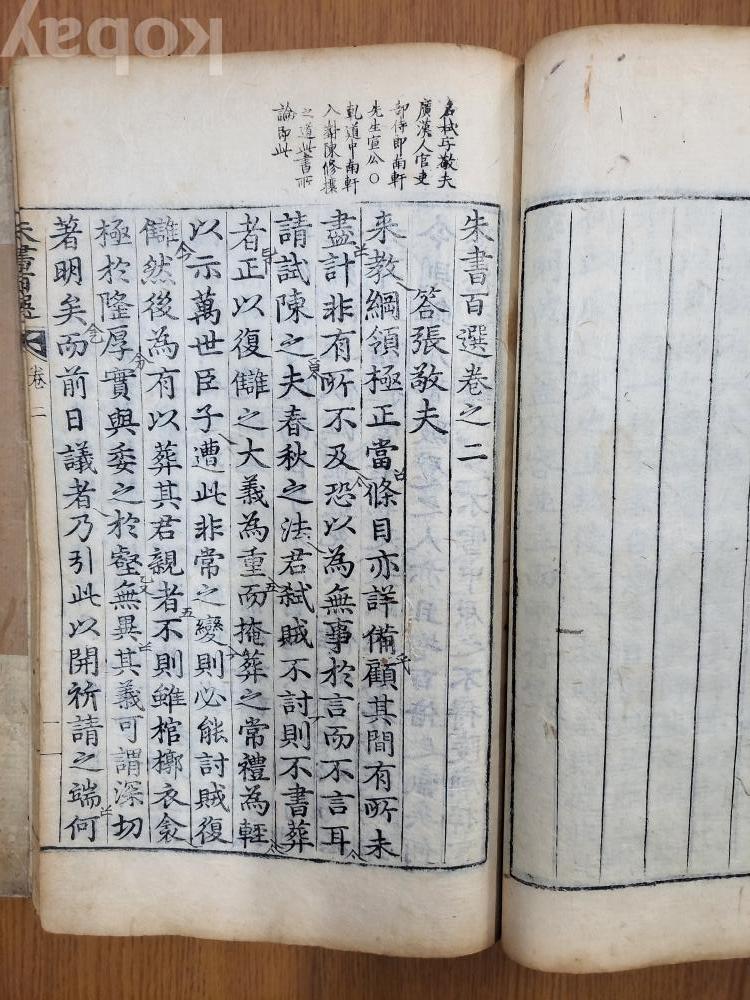 kobay
名栻字敬夫
廣漢人官吏
部侍郎南軒
先生宣公○
乾道中南軒
入謝陳修攘
之道此書所
論即此
朱書百選卷之二
答張敬夫
来教綱領極正當條目亦詳備顧其間有所未
盡計非有所不及恐以為無事於言而不言耳
請試陳之夫春秋之法君弑賊不討則不書葬
者正以復讎之大義為重而掩葬之常禮為輕
以示萬世臣子遭此非常之變則必能討賊復
讎然後為有以葬其君親者不則雖棺槨衣衾
極於隆厚實與委之於壑無異其義可謂深切
著明矣而前日議者乃引此以開祈請之端何
朱書百選
卷二
一